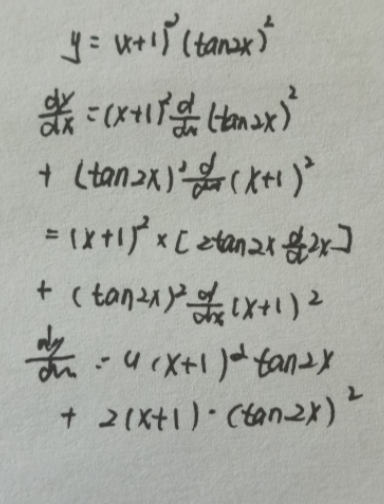 y = (x+1)² (tan2x)²
dy/dx = (x+1)² d/dx (tan2x)²
+ (tan2x)² d/dx (x+1)²
= (x+1)² × [2tan2x d/d 2x]
+ (tan2x)² d/dx (x+1)²
dy/dx = 4(x+1)² tan2x
+ 2(x+1)·(tan2x)²